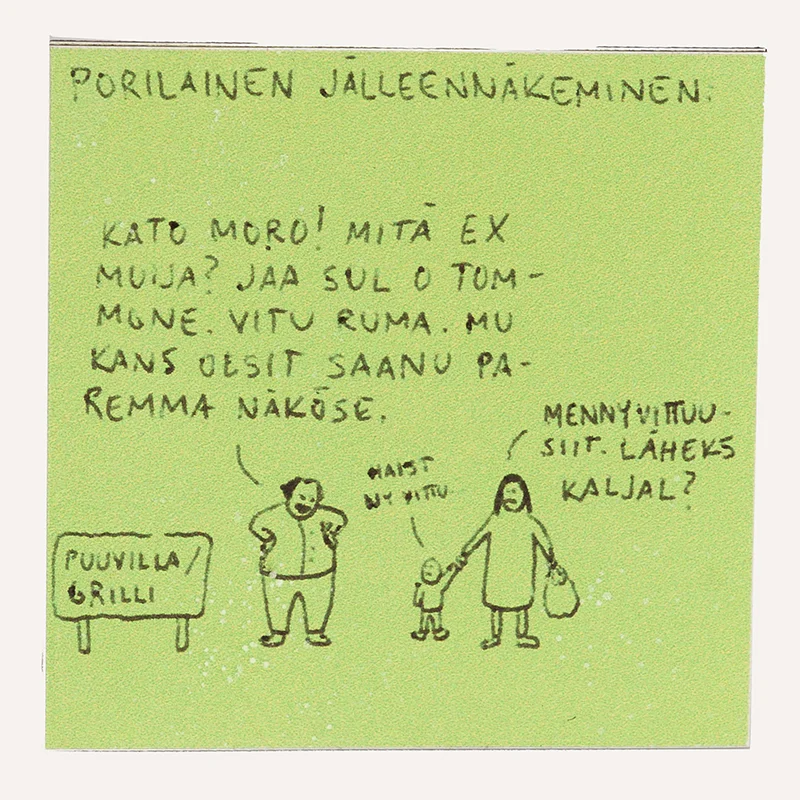 PORILAINEN JÄLLEENNÄKEMINEN:
KATO MORO! MITÄ EX
MUIJA? JAA SUL O TOM-
MONE. VITU RUMA. MU
KANS OLSIT SAANU PA-
REMMA NÄKÖSE.
MENNYVITTUU-
SIIT. LÄHEKS
KALJAL?
HAIST
NY VITTU
PUUVILLA/
GRILLI